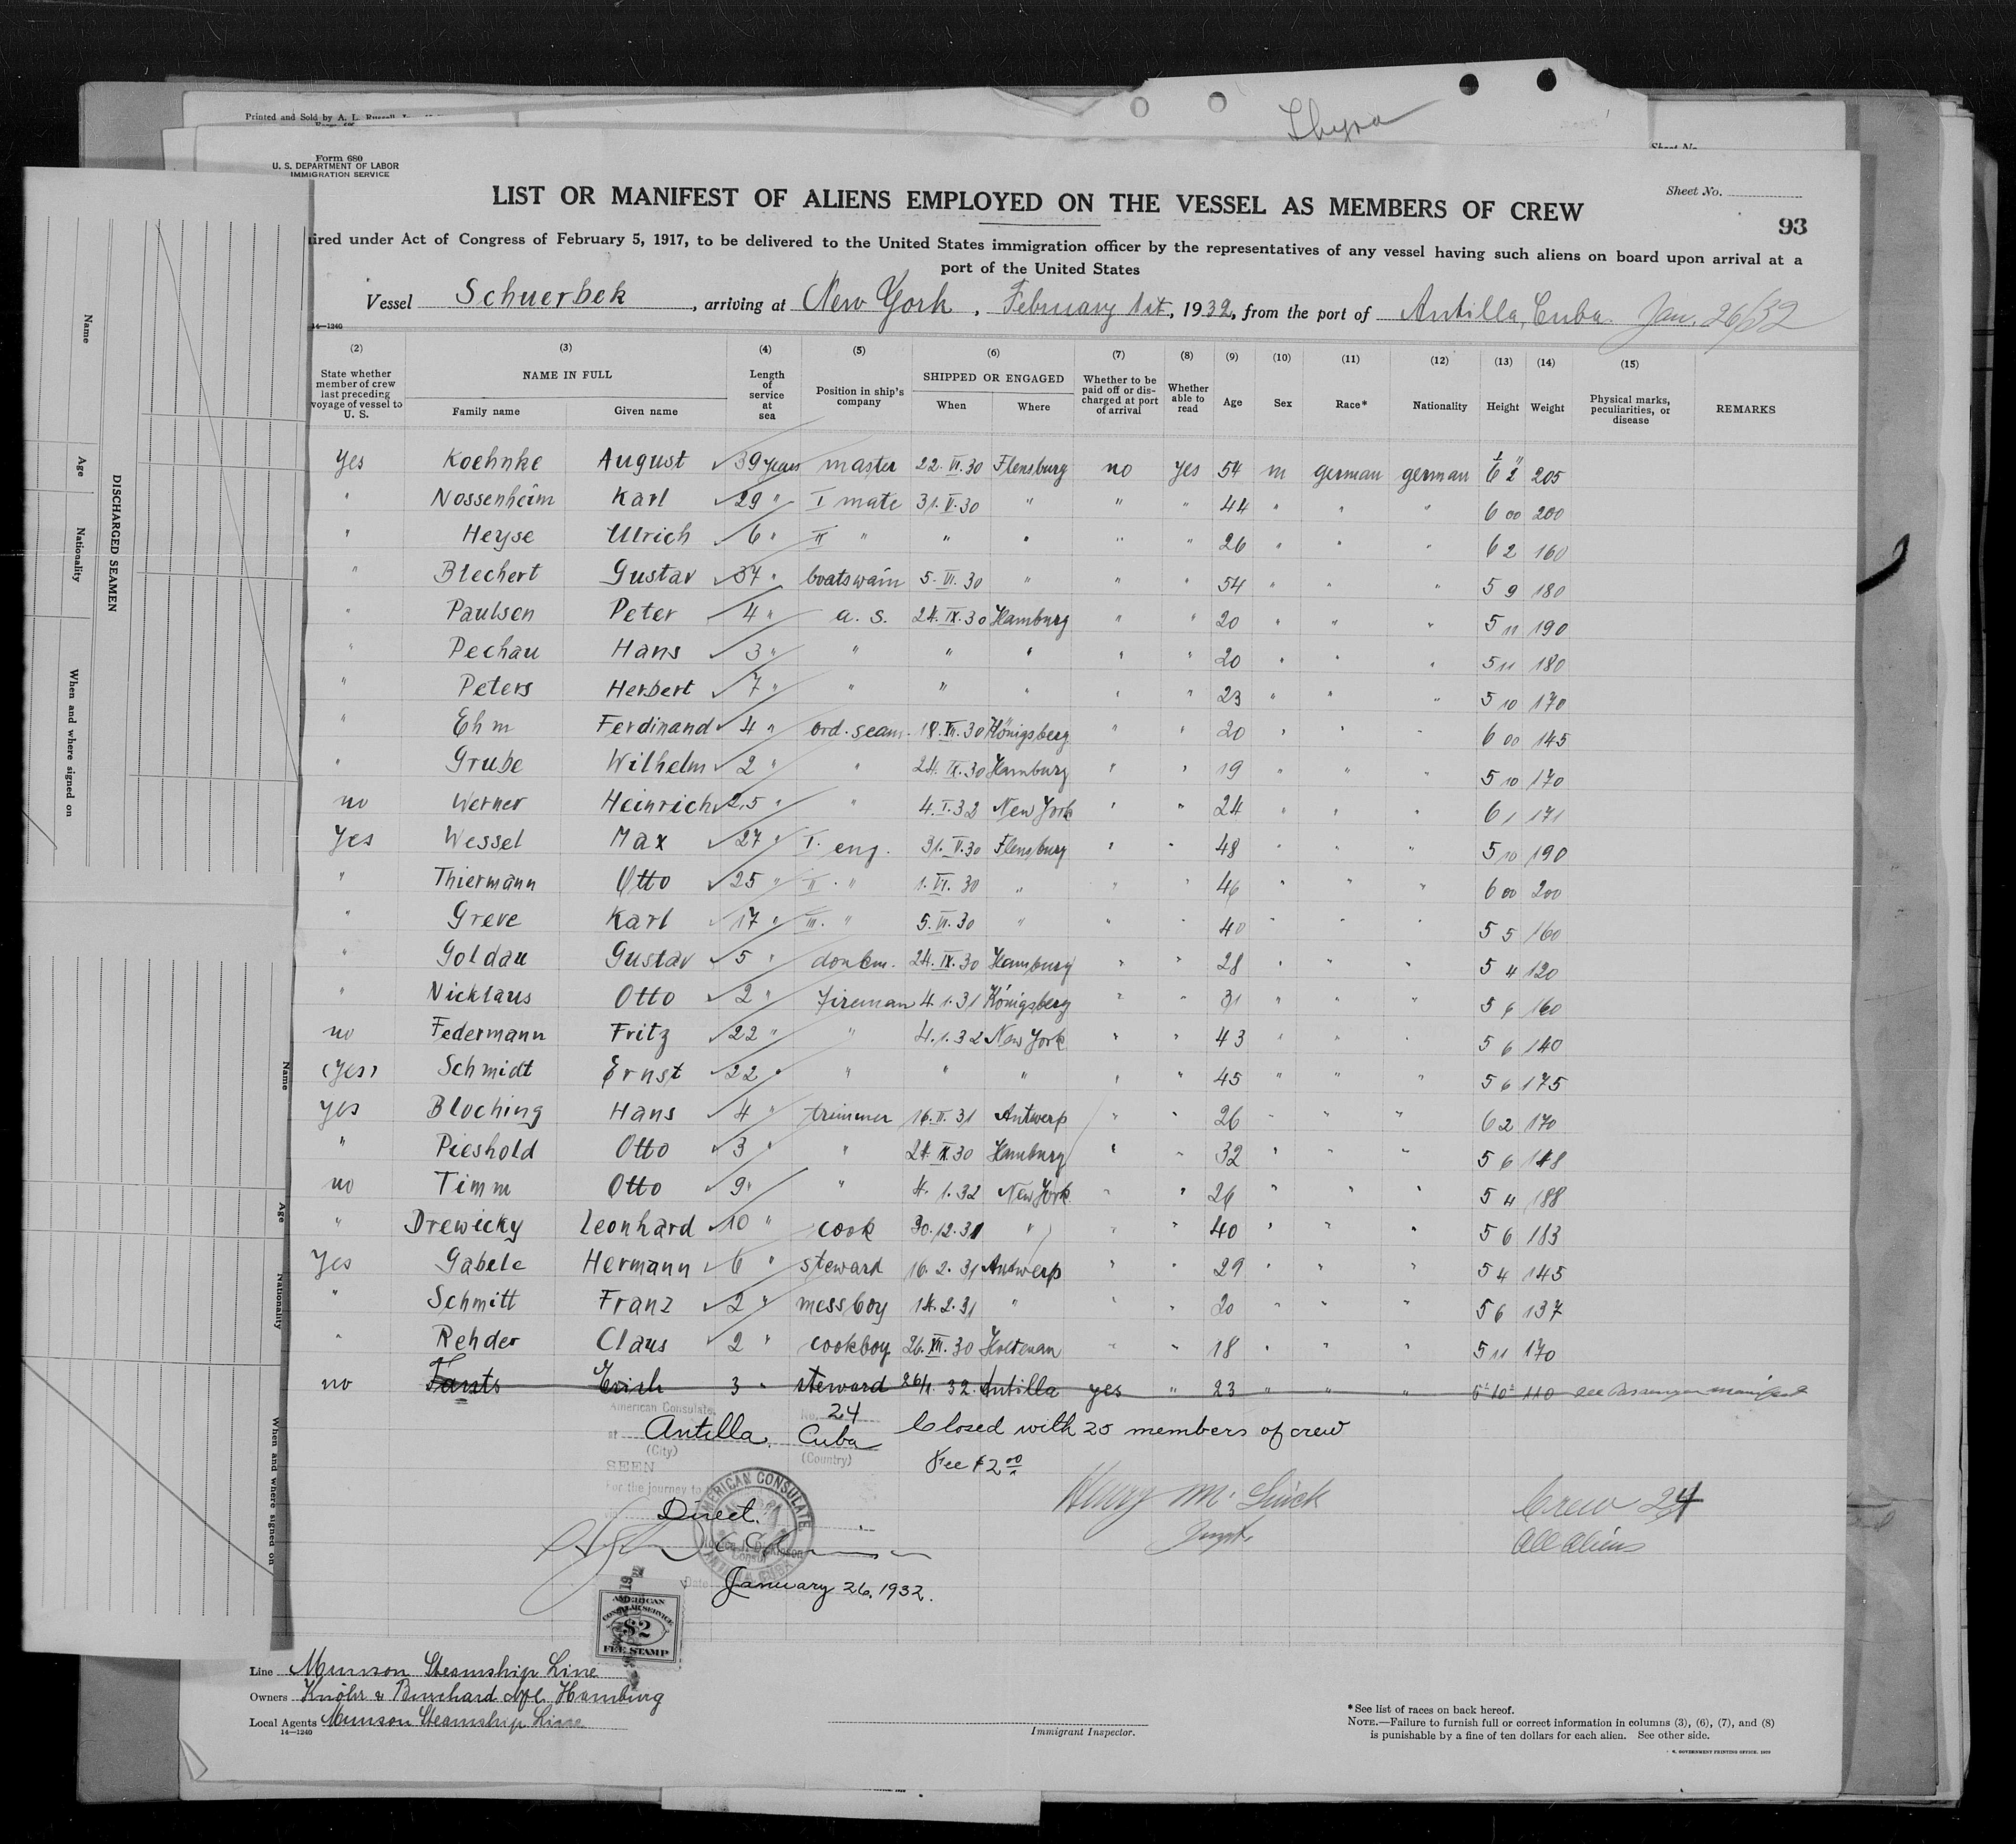 Printed and Sold by A. L. Russell
Thyra
Sheet No.
Form 680
U. S. DEPARTMENT OF LABOR
IMMIGRATION SERVICE
Sheet No.
LIST OR MANIFEST OF ALIENS EMPLOYED ON THE VESSEL AS MEMBERS OF CREW
93
ired under Act of Congress of February 5, 1917, to be delivered to the United States immigration officer by the representatives of any vessel having such aliens on board upon arrival at a
port of the United States
Vessel Schuerbek, arriving at New York, February 1st, 1932, from the port of Antilla, Cuba. Jan. 26/32
14—1240
(2) (3) (4) (5) (6) (7) (8) (9) (10) (11) (12) (13) (14) (15)
State whether member of crew last preceding voyage of vessel to U. S. NAME IN FULL Family name Given name Length of service at sea Position in ship's company SHIPPED OR ENGAGED When Where Whether to be paid off or discharged at port of arrival Whether able to read Age Sex Race* Nationality Height Weight Physical marks, peculiarities, or disease REMARKS
Yes Koehnke August 39 years master 22. VI. 30 Flensburg no yes 54 m german german 6 2 205
" Nossenheim Karl 29 " I mate 31. V. 30 " " " 44 " " " 6 00 200
" Heyse Ulrich 6 " II " " " " " 26 " " " 6 2 160
" Blechert Gustav 34 " boatswain 5. VI. 30 " " " 54 " " " 5 9 180
" Paulsen Peter 4 " a. s. 24. IX. 30 Hamburg " " 20 " " " 5 11 190
" Pechau Hans 3 " " " " " " 20 " " " 5 11 180
" Peters Herbert 7 " " " " " " 23 " " " 5 10 170
" Ehm Ferdinand 4 " ord. seam. 18. XII. 30 Königsberg " " 20 " " " 6 00 145
" Grube Wilhelm 2 " " 24. IX. 30 Hamburg " " 19 " " " 5 10 170
no Werner Heinrich 2,5 " " 4. I. 32 New York " " 24 " " " 6 1 171
Yes Wessel Max 27 " I. eng. 31. V. 30 Flensburg " " 48 " " " 5 10 190
" Thiermann Otto 25 " II. " 1. VI. 30 " " " 46 " " " 6 00 200
" Greve Karl 17 " III. " 5. VI. 30 " " " 40 " " " 5 5 160
" Goldau Gustav 5 " donkm. 24. IX. 30 Hamburg " " 28 " " " 5 4 120
" Nicklaus Otto 2 " fireman 4. 1. 31 Königsberg " " 31 " " " 5 6 160
no Federmann Fritz 22 " " 4. 1. 32 New York " " 43 " " " 5 6 140
(Yes) Schmidt Ernst 22 " " " " " " 45 " " " 5 6 175
yes Bloching Hans 4 " trimmer 16. II. 31 Antwerp " " 26 " " " 6 2 170
" Pieshold Otto 3 " " 24. IX. 30 Hamburg " " 32 " " " 5 6 148
no Timm Otto 9 " " 4. 1. 32 New York " " 26 " " " 5 4 188
" Drewicky Leonhard 10 " cook 30. 12. 31 " " " 40 " " " 5 6 183
Yes Gabele Hermann 6 " steward 16. 2. 31 Antwerp " " 29 " " " 5 4 145
" Schmitt Franz 2 " messboy 14. 2. 31 " " " 20 " " " 5 6 137
" Rehder Claus 2 " cookboy 26. XII. 30 Holtenau " " 18 " " " 5 11 170
no Erich 3 " steward 26/1. 32. Antilla yes " 23 " " " 5 10 110 see Passenger manifest
American Consulate. No. 24
at Antilla, Cuba Closed with 25 members of crew
(City) (Country)
SEEN Fee $2.00
For the journey to
Direct.
AMERICAN CONSULATE
ANTILLA, CUBA
Horace J. Dickinson
Consul
Henry M.
Inspt.
Crew 24
All aliens
Date January 26, 1932.
AMERICAN
CONSULAR SERVICE
$2
FEE STAMP
Line Munson Steamship Line
Owners Knöhr & Burchard Nfl. Hamburg
Local Agents Munson Steamship Line
14—1240
Immigrant Inspector.
* See list of races on back hereof.
NOTE.—Failure to furnish full or correct information in columns (3), (6), (7), and (8)
is punishable by a fine of ten dollars for each alien. See other side.
DISCHARGED SEAMEN
Name
Age
Nationality
When and where signed on
Name
Age
Nationality
When and where signed on